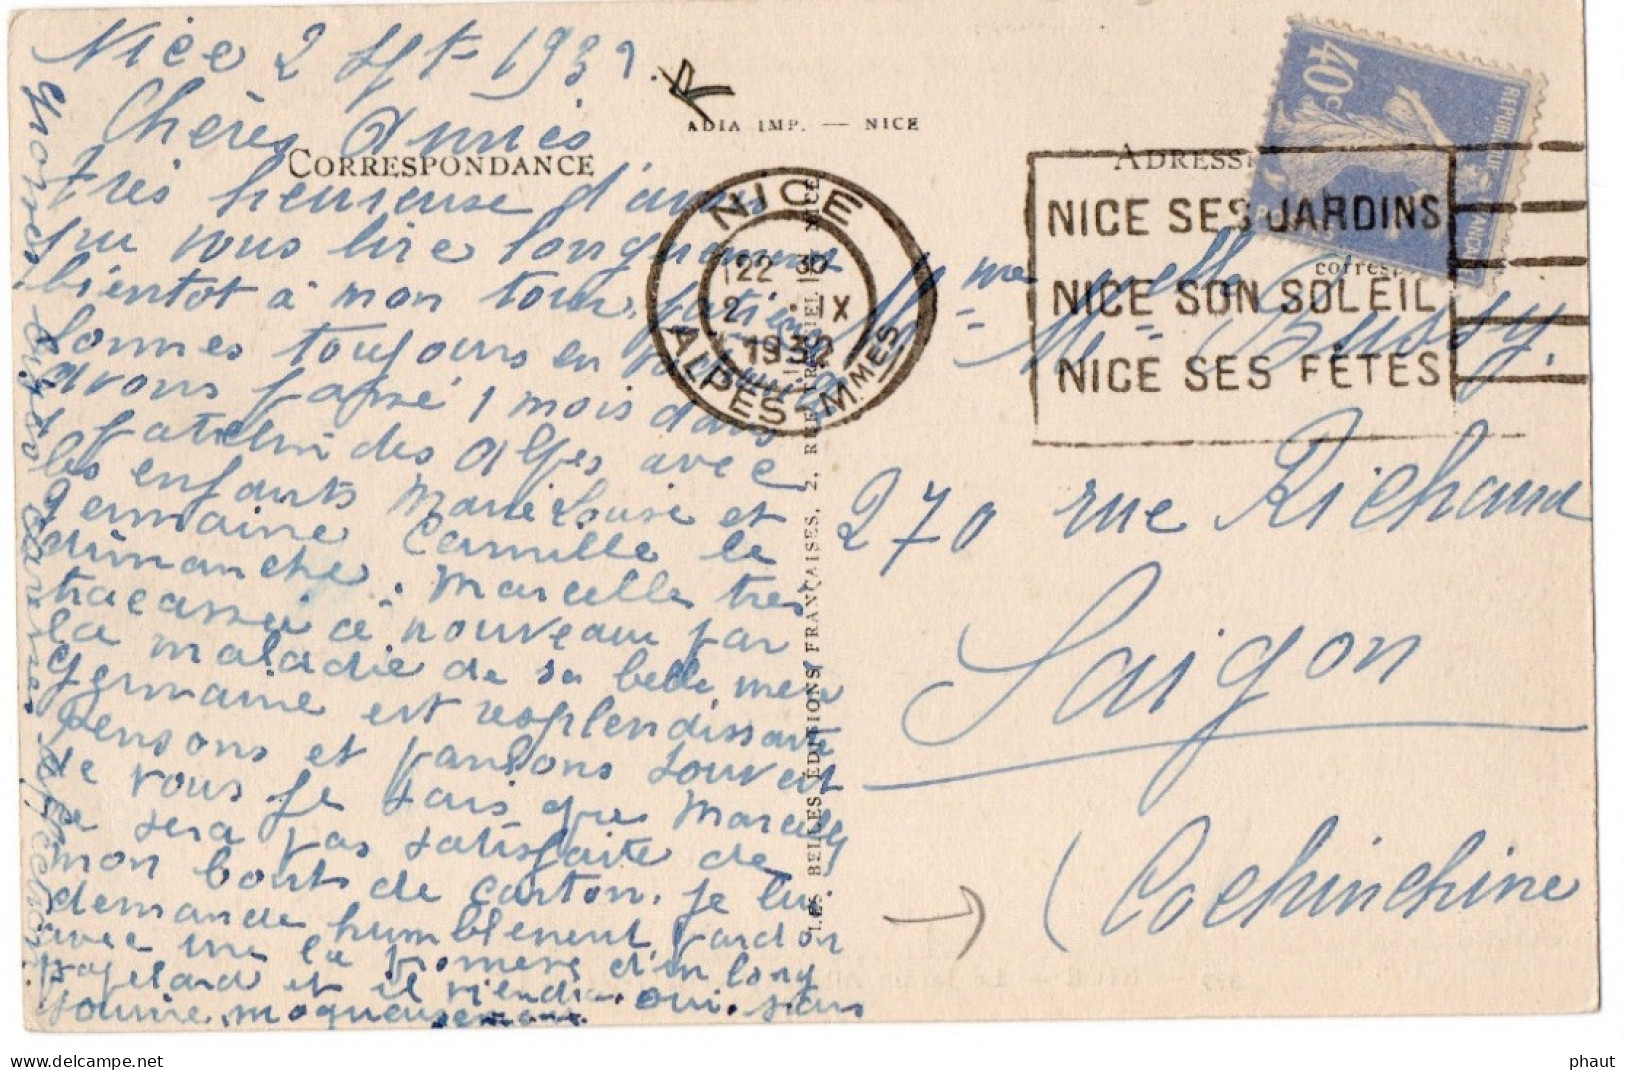 Nice 2 Sept 1932.
Chères Amies
ADIA IMP. — NICE
CORRESPONDANCE
très heureuse d'avoir
pu vous lire longuement
bientôt à mon tour, patience
sommes toujours en
avons passé 1 mois dans
patelin des Alpes avec
les enfants Marie Louise et
Germaine Camille le
dimanche. Marcelle très
tracassée à nouveau par
la maladie de sa belle mère
Germaine est resplendissante
pensons et parlons souvent
de vous je sais que Marcelle
ne sera pas satisfaite de
mon bouts de carton. je lui
demande humblement pardon
avec une la promesse d'un long
papelard et il viendra. oui. sans
sourire moqueusement.
affection.
LES BELLES ÉDITIONS FRANÇAISES, 2, RUE NICE
NICE
22 30
2 · IX
1932
ALPES-MMES
ADRESSE
40c
REPUBLIQUE FRANÇAISE
NICE SES JARDINS
NICE SON SOLEIL
NICE SES FÊTES
Mme Melle
Bussy.
270 rue Richaud
Saigon
(Cochinchine
delcampe.net
phaut